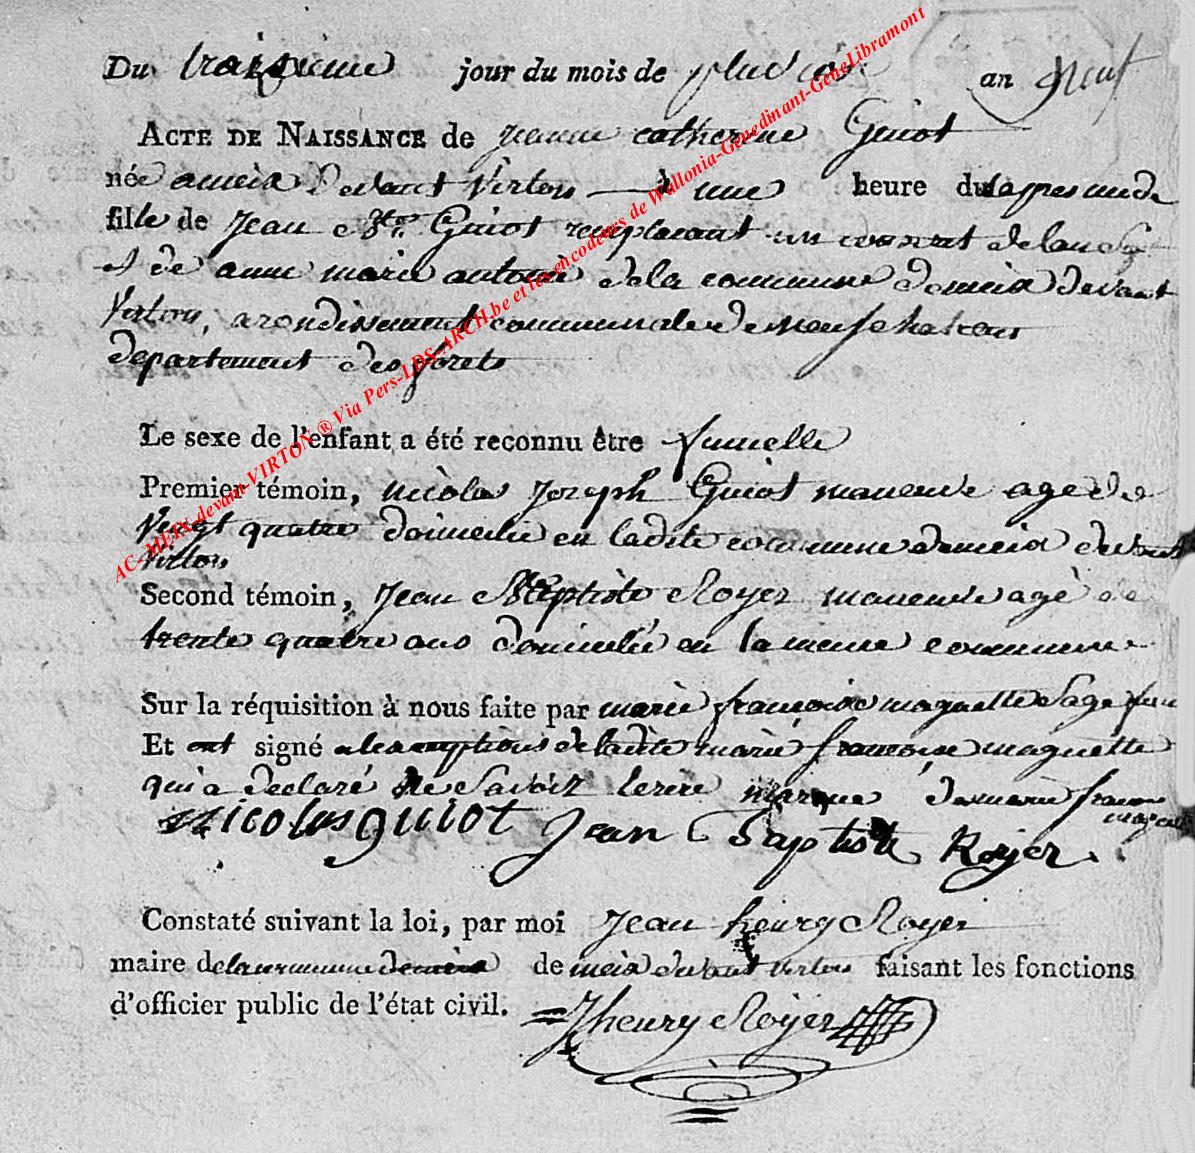 Du traisieme jour du mois de pluviôse an neuf
ACTE DE NAISSANCE de jeanne catherine Guiot
née a meix Devant Virton — à une heure du apres midi
fille de Jean Guiot remplacant un conscrit
et de anne marie antoine de la commune de meix devant
Virton, arondissement communale de neufchateau
departement des forets
Le sexe de l'enfant a été reconnu être fumelle
Premier témoin, nicolas Joseph Guiot maneuvre age de
Vingt quatre domicilié en ladite commune de meix devant
Virton
Second témoin, Jean Bteptiste Royer maneuvre agé de
trente quatre ans domicilié en la meme commune
Sur la réquisition à nous faite par marie françoise maquette Sage fem
Et ont signé a lexception de ladite marie françoise maquette
qui a declaré ne Savoir lerire marque de marie francoise
maquette
Nicolas guiot Jean Baptiste Royer
Constaté suivant la loi, par moi Jean henry Royer
maire de la commune de meix de meix devant virton faisant les fonctions
d'officier public de l'état civil. Jhenry Royer
AC-METX-devant-VIRTON ® Via Pers-LDS-ARCH.be et les encodeurs de Wallonia-Genedinant-GeneLibramont